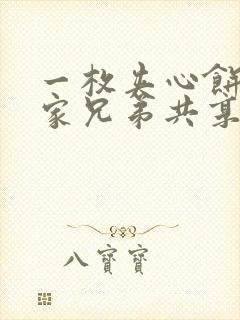 一枚夹心餅
家兄弟共享
八寶寶